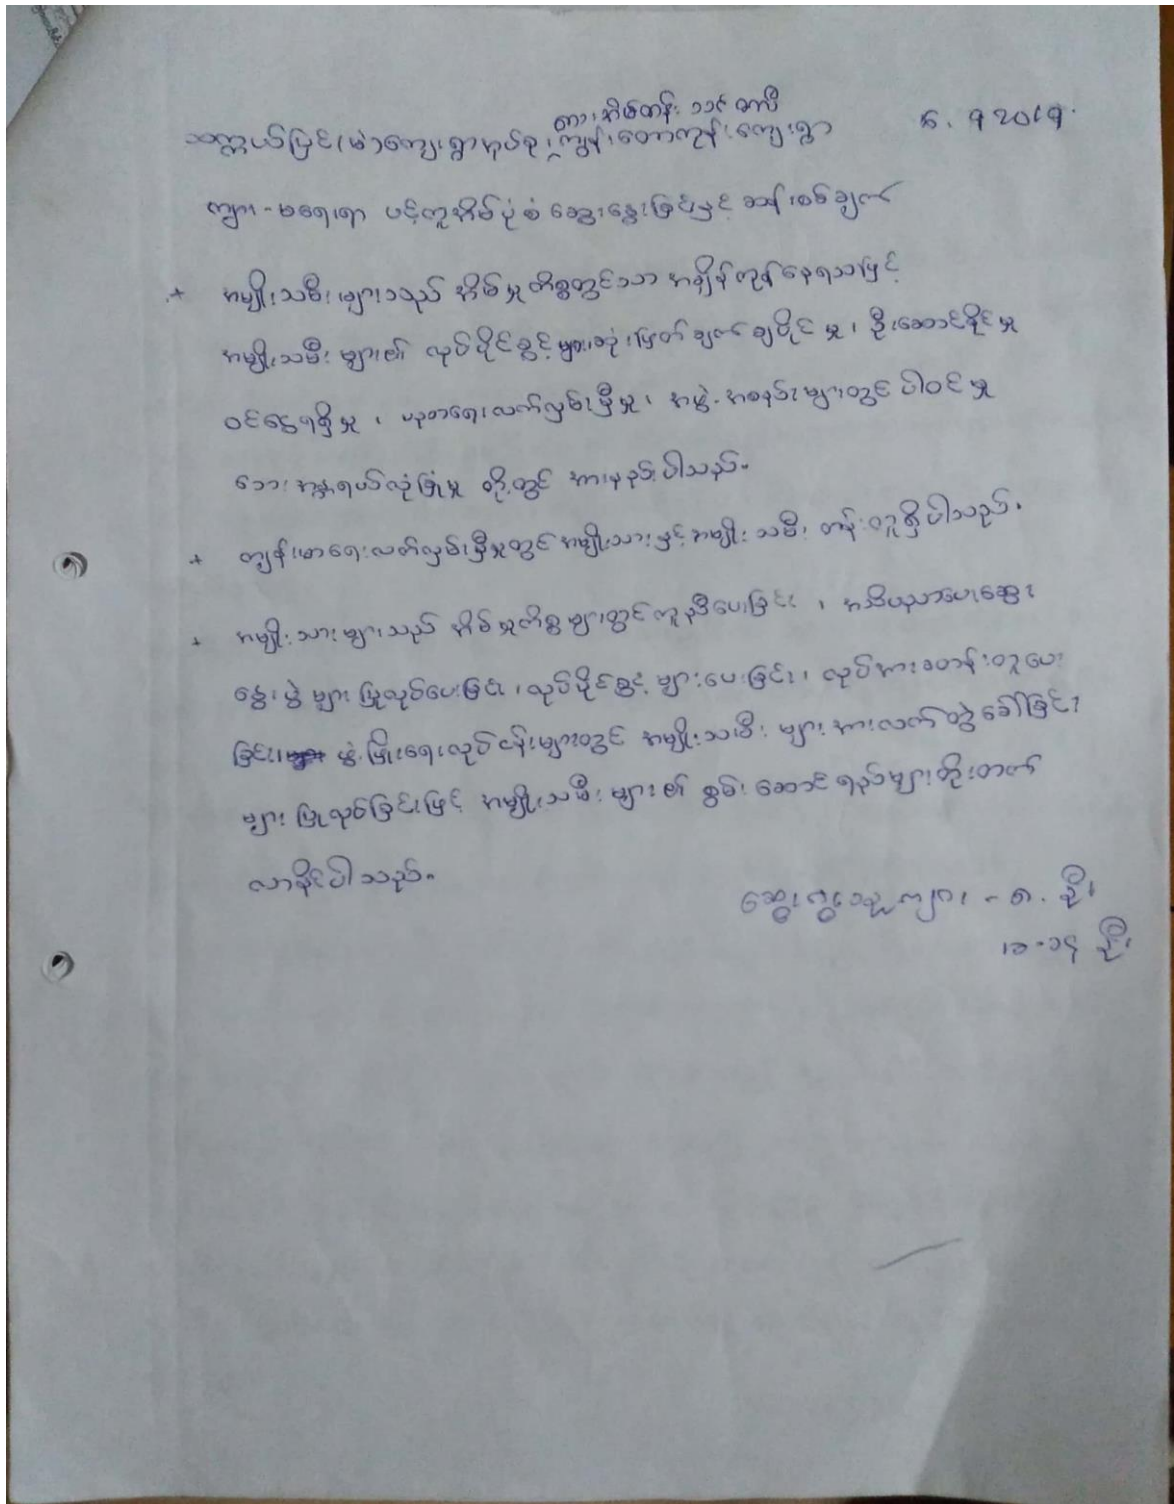 တာ၊အိမ်တန်း ၁၁၉ စာလီ
သက္ကယ်ပြင်(မဲ)ကျေးရွာအုပ်စု၊ ကျွန်းတောကုန်းကျေးရွာ
ကျား-မရေးရာ ပင့်ကူအိမ်ပုံစံ ဆွေးနွေးခြင်းနှင့် ဆန်းစစ်ချက်
+ အမျိုးသမီးများသည် အိမ်မှုကိစ္စတွင်သာ အချိန်ကုန်နေရသဖြင့်
အမျိုးသမီးများ၏ လုပ်ပိုင်ခွင့်၊ ဆုံးဖြတ်ချက်ချပိုင်မှု၊ ဦးဆောင်နိုင်မှု
ဝင်ငွေရရှိမှု ၊ ပညာရေးလက်လှမ်းမှီမှု၊ အဖွဲ့အစည်းများတွင် ပါဝင်မှု
ဘေးအန္တရယ်လုံခြုံမှု တို့တွင် အားနည်းပါသည်။
+ ကျန်းမာရေးလက်လှမ်းမှီမှုတွင် အမျိုးသားနှင့်အမျိုးသမီး တန်းတူရှိပါသည်။
+ အမျိုးသားများသည် အိမ်မှုကိစ္စများတွင်ကူညီပေးခြင်း ၊ အသိပညာပေးဆွေး
နွေးပွဲများ ပြုလုပ်ပေးခြင်း၊ လုပ်ပိုင်ခွင့်များပေးခြင်း၊ လုပ်အားခတန်းတူပေး
ခြင်း၊ ဖွံ့ဖြိုးရေးလုပ်ငန်းများတွင် အမျိုးသမီးများအားလက်တွဲခေါ်ခြင်း
များ ပြုလုပ်ခြင်းဖြင့် အမျိုးသမီးများ၏ စွမ်းဆောင်ရည်များတိုးတက်
လာနိုင်ပါသည်။
ဆွေးနွေးသူ ကျား - ၈ ဦး
မ - ၁၄ ဦး